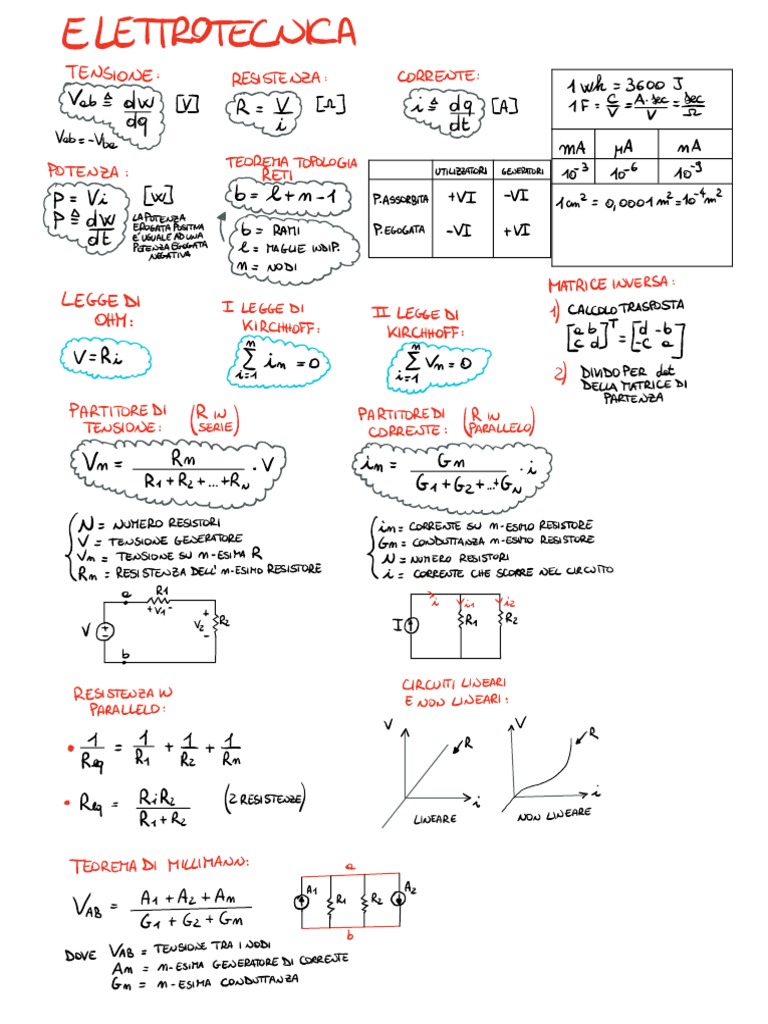 ELETTROTECNICA
TENSIONE:
Vab ≜ dw/dq [V]
Vab = -Vba
RESISTENZA:
R = V/i [Ω]
CORRENTE:
i ≜ dq/dt [A]
1 Wh = 3600 J
1 F = C/V = A·sec/V = sec/Ω
mA μA nA
10⁻³ 10⁻⁶ 10⁻⁹
1 cm² = 0,0001 m² = 10⁻⁴ m²
POTENZA:
P = Vi [W]
P ≜ dw/dt
LA POTENZA
EROGATA POSITIVA
E' UGUALE AD UNA
POTENZA EROGATA
NEGATIVA
TEOREMA TOPOLOGIA
RETI
b = l + n - 1
b = RAMI
l = MAGLIE INDIP.
n = NODI
UTILIZZATORI GENERATORI
P. ASSORBITA +VI -VI
P. EROGATA -VI +VI
LEGGE DI
OHM:
V = Ri
I LEGGE DI
KIRCHHOFF:
n
∑ in = 0
i=1
II LEGGE DI
KIRCHHOFF:
n
∑ Vn = 0
i=1
MATRICE INVERSA:
1) CALCOLO TRASPOSTA
[a b; c d]ᵀ = [d -b; -c a]
2) DIVIDO PER det
DELLA MATRICE DI
PARTENZA
PARTITORE DI
TENSIONE: (R IN SERIE)
Vn = Rn / (R1 + R2 + ... + RN) · V
N = NUMERO RESISTORI
V = TENSIONE GENERATORE
Vn = TENSIONE SU n-ESIMA R
Rn = RESISTENZA DELL' n-ESIMO RESISTORE
a
R1
+ V1 -
V + -
+ V2 -
R2
b
PARTITORE DI
CORRENTE: (R IN PARALLELO)
in = Gn / (G1 + G2 + ... + GN) · i
in = CORRENTE SU n-ESIMO RESISTORE
Gn = CONDUTTANZA n-ESIMO RESISTORE
N = NUMERO RESISTORI
i = CORRENTE CHE SCORRE NEL CIRCUITO
i i1 i2
I R1 R2
RESISTENZA IN
PARALLELO:
• 1/Req = 1/R1 + 1/R2 + 1/Rn
• Req = R1R2 / (R1 + R2) (2 RESISTENZE)
CIRCUITI LINEARI
E NON LINEARI:
V R i
LINEARE
V R i
NON LINEARE
TEOREMA DI MILLMANN:
VAB = (A1 + A2 + An) / (G1 + G2 + Gn)
a
A1 R1 R2 A2
b
DOVE VAB = TENSIONE TRA I NODI
An = n-ESIMA GENERATORE DI CORRENTE
Gn = n-ESIMA CONDUTTANZA